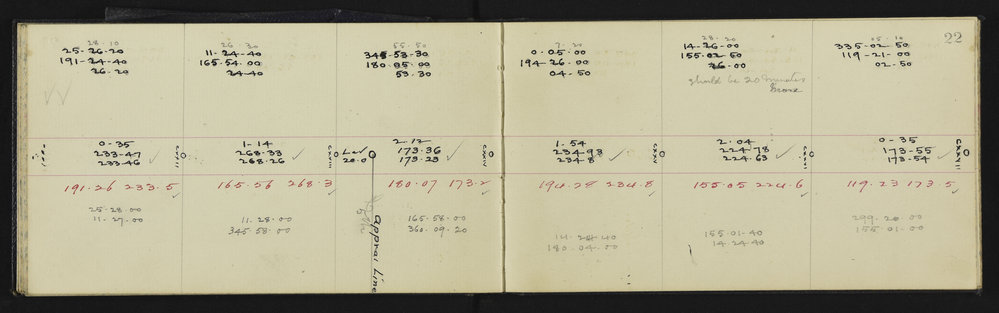 22
28-10
25-26-20
191-24-40
26-20
26-30
11-24-40
165-54-00
24-40
55-50
345-53-30
180-05-00
53-30
7-20
0-05-00
194-26-00
04-50
28-20
14-26-00
155-02-50
26-00
should be 20 minutes
more
05-10
335-02-50
119-21-00
02-50
0-35
233-47
233-46
CXXII
1-14
268-33
268-26
CXXIII
Lev
20.0
2.12
173.36
173.23
CXXIV
1.54
234.93
234.8
CXXV
2.04
224.78
224.63
CXXVI
0-35
173-55
173-54
CXXVII
191.26 233.5
165.56 268.3
180.07 173.2
194.28 234.8
155.05 224.6
119.23 173.5
25-28-00
11-27-00
11-28-00
345-58-00
Line
165-58-00
360-09-20
14-24-40
180-04-00
155-01-40
14-24-40
299-20-00
155-01-00